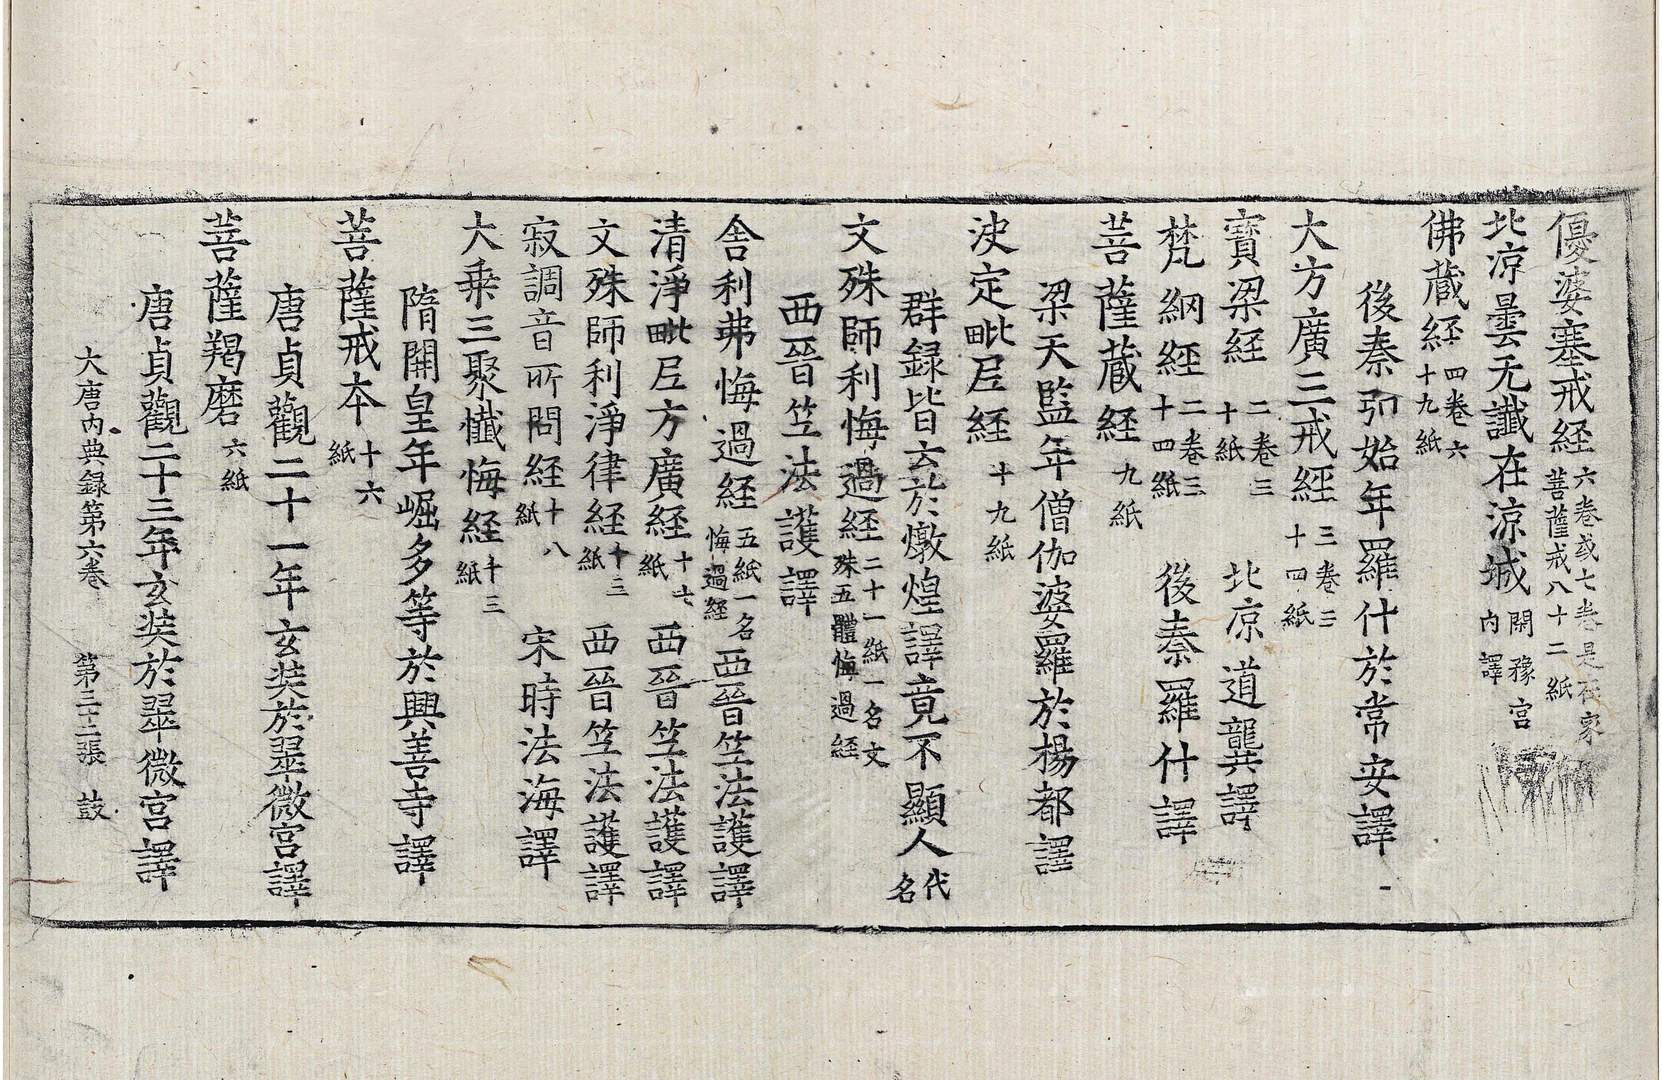 優婆塞戒経六卷或七卷是在家菩薩戒八十二紙
北涼曇无讖在涼城閑豫宫内譯
佛蔵経四卷六十九紙
後秦弘始年羅什於常安譯
大方廣三戒経三卷三十四紙
寳梁経二卷三十紙　北凉道龔譯
梵綱経二卷三十四紙　後秦羅什譯
菩薩蔵経九紙
梁天監年僧伽婆羅於楊都譯
決定毗尼経十九紙
群録皆云於燉煌譯竟不顯人代名
文殊師利悔過経二十一紙一名文殊五體悔過経
西晉竺法護譯
舎利弗悔過経五紙一名悔過経　西晉竺法護譯
清淨毗尼方廣経十七紙　西晉竺法護譯
文殊師利淨律経十三紙　西晉竺法護譯
寂調音所問経十八紙　宋時法海譯
大乗三聚懴悔経十三紙
隋開皇年崛多等於興善寺譯
菩薩戒本十六紙
唐貞觀二十一年玄奘於翠微宫譯
菩薩羯磨六紙
唐貞觀二十三年玄奘於翠微宫譯
大唐内典録第六卷　第三十二張　鼓